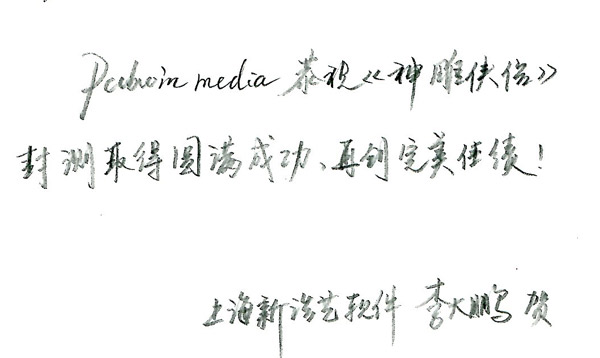 media 恭祝《神雕侠侣》
封测取得圆满成功、再创完美佳绩！
上海新浩艺软件 李大鹏 贺